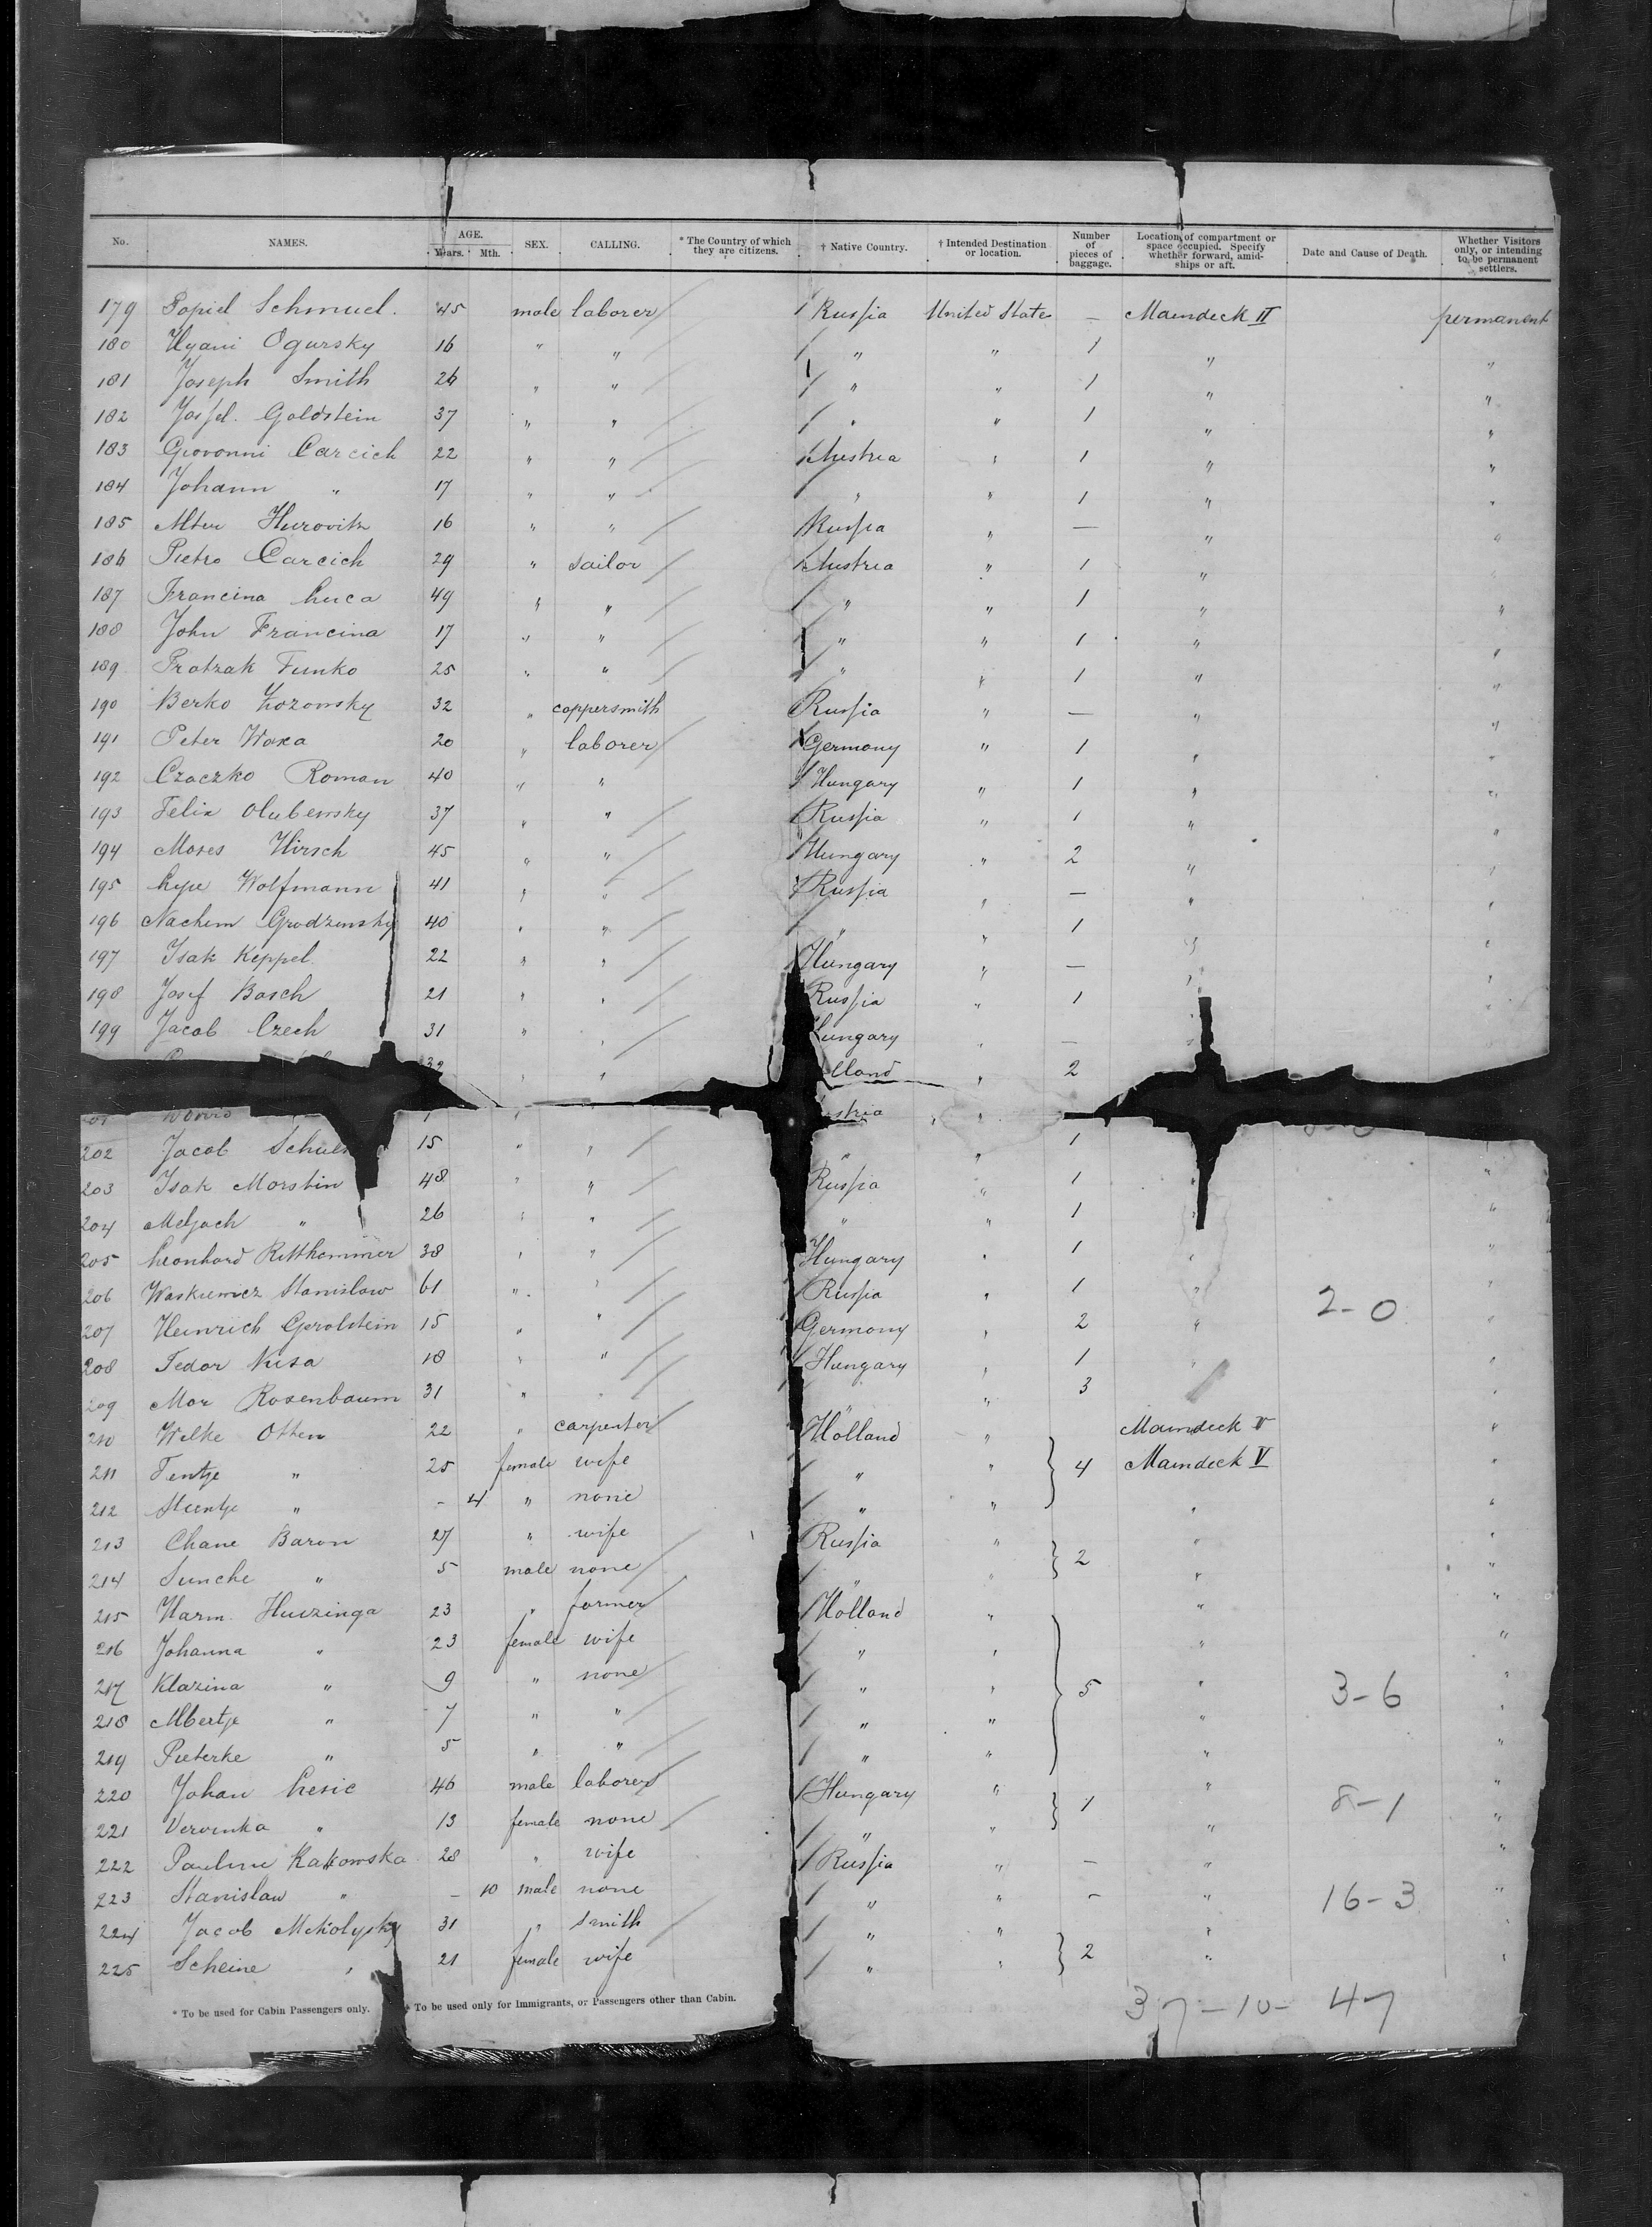 No. NAMES. AGE. Years. Mth. SEX. CALLING. * The Country of which they are citizens. † Native Country. † Intended Destination or location. Number of pieces of baggage. Location of compartment or space occupied. Specify whether forward, amidships or aft. Date and Cause of Death. Whether Visitors only, or intending to be permanent settlers.
179 Popiel Schmuel. 45 male laborer Russia United State — Maindeck II permanent
180 Ogursky 16 " " " " 1 " "
181 Joseph Smith 26 " " " " 1 " "
182 Jossel. Goldstein 37 " " " " 1 " "
183 Giovonni Carcich 22 " " Austria " 1 " "
184 Johann " 17 " " " " 1 " "
185 Alter Hurovitz 16 " " Russia " — " "
186 Pietro Carcich 29 " sailor Austria " 1 "
187 Francina Luca 49 " " " " 1 " "
188 John Francina 17 " " " " 1 "
189 Protzak Funko 25 " " " " 1 " "
190 Berko Lozowsky 32 " coppersmith Russia " — " "
191 Peter Woxa 20 " laborer Germany " 1 " "
192 Czaczko Roman 40 " " Hungary " 1 " "
193 Felix Olubewsky 37 " " Russia " 1 " "
194 Moses Hirsch 45 " " Hungary " 2 " "
195 Leye Wolfmann 41 " " Russia " — " "
196 Nachem Grodzensky 40 " " " " 1 " "
197 Isak Keppel 22 " " Hungary " — " "
198 Josef Basch 21 " " Russia " 1 "
199 Jacob Czech 31 " " Hungary " —
32 " " lland " 2
" stria "
202 Jacob 15 " " " " 1
203 Isak Morstin 48 " " Russia " 1 "
204 " 26 " " " " 1 "
205 Leonhard Ritthammer 38 " " Hungary " 1 " "
206 Waskiewicz Stanislaw 61 " " Russia " 1 " "
2-0
207 Heinrich Gerolstein 15 " " Germany " 2 " "
208 Fedor Kisa 18 " " Hungary " 1 " "
209 Mor Rosenbaum 31 " " " " 3 "
210 Welke Otten 22 " carpenter Holland " Maindeck V "
211 Tentje " 25 female wife " " 4 Maindeck V "
212 " - 4 " none " " " "
213 Chane Baron 27 " wife Russia " 2 " "
214 Sunche " 5 male none " " " "
215 Harm Huizinga 23 " farmer Holland " " "
216 Johanna " 23 female wife " " " "
217 Klazina " 9 " none " " 5 " 3-6 "
218 Albertje " 7 " " " " " "
219 Pieterke " 5 " " " " " "
220 Johan Lesic 46 male laborer Hungary " 1 " 8-1 "
221 Veronka " 13 female none " " " "
222 Pauline Kakowska 28 " wife Russia " — " "
223 Stanislaw " - 10 male none " " - " 16-3 "
224 Jacob 31 " smith " " " "
225 Scheine " 21 female wife " " 2 " "
* To be used for Cabin Passengers only. † To be used only for Immigrants, or Passengers other than Cabin.
37-10- 47